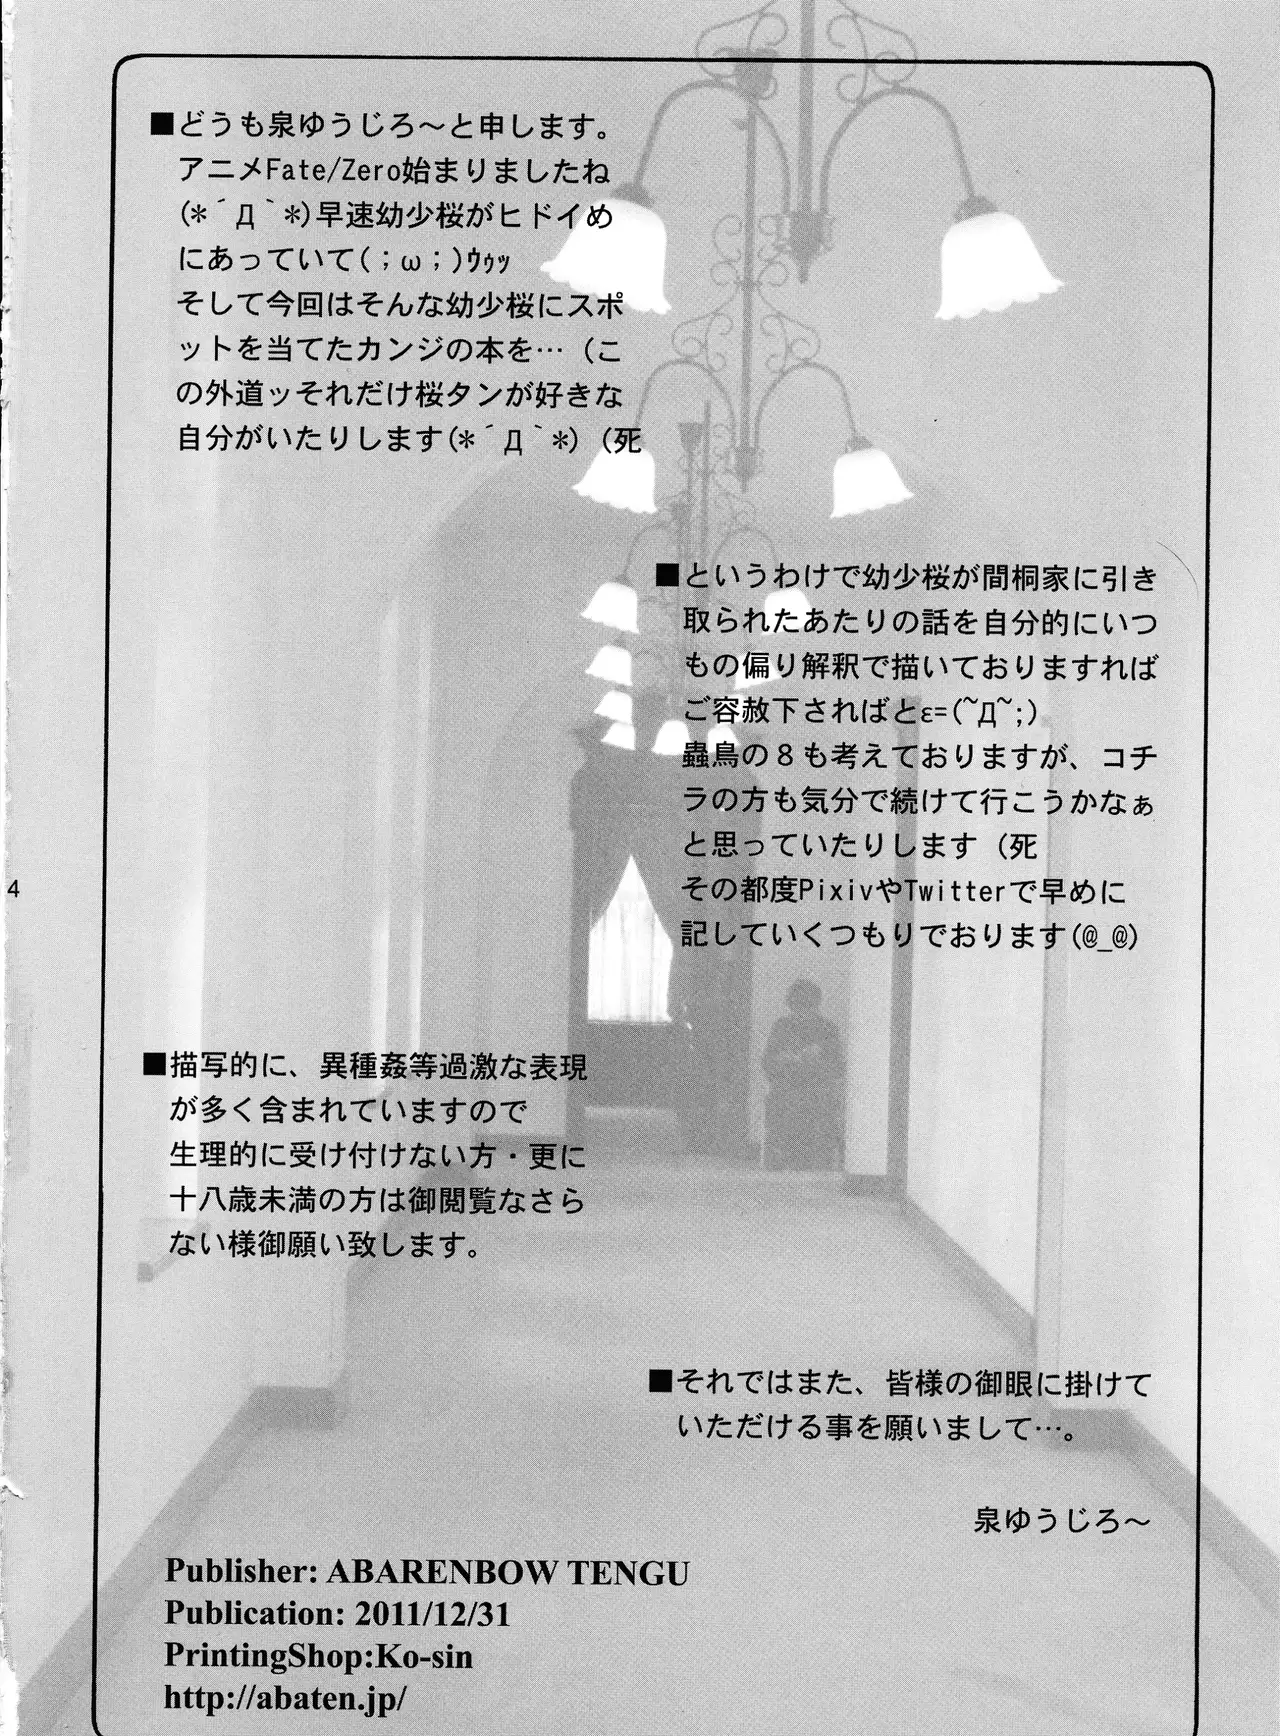 ■どうも泉ゆうじろ～と申します。
アニメFate/Zero始まりましたね
(*´Д｀*)早速幼少桜がヒドイめ
にあっていて(；ω；)ｳｩｯ
そして今回はそんな幼少桜にスポ
ットを当てたカンジの本を…（こ
の外道ッそれだけ桜タンが好きな
自分がいたりします(*´Д｀*)（死
■というわけで幼少桜が間桐家に引き
取られたあたりの話を自分的にいつ
もの偏り解釈で描いておりますれば
ご容赦下さればとε=(~Д~;)
蟲鳥の８も考えておりますが、コチ
ラの方も気分で続けて行こうかなぁ
と思っていたりします（死
その都度PixivやTwitterで早めに
記していくつもりでおります(@_@)
4
■描写的に、異種姦等過激な表現
が多く含まれていますので
生理的に受け付けない方・更に
十八歳未満の方は御閲覧なさら
ない様御願い致します。
■それではまた、皆様の御眼に掛けて
いただける事を願いまして…。
泉ゆうじろ～
Publisher: ABARENBOW TENGU
Publication: 2011/12/31
PrintingShop:Ko-sin
http://abaten.jp/